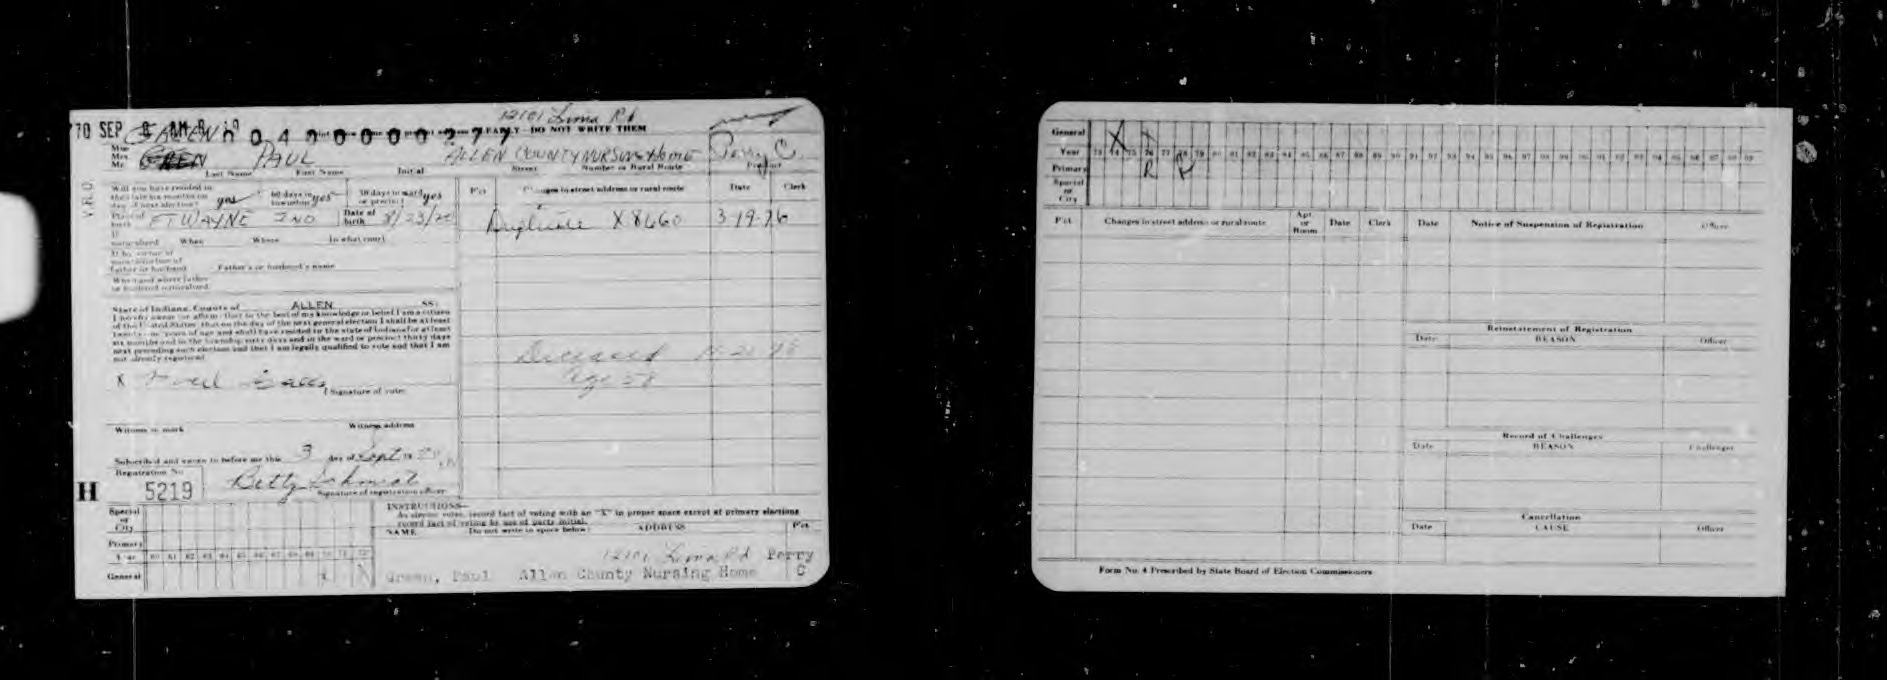 12101 Lima Rd
70 SEP 3 AM 8 19
GREEN 0 0 4 0 0 0 0 0 2 7 7
EARLY—DO NOT WRITE THEM
Miss
Mrs.
Mr. PAUL ALLEN COUNTY NURSING HOME Perry C
Last Name First Name Initial Street Number or Rural Route Precinct
V.R.O.
Will you have resided in the state six months on day of next election? yes 60 days in township yes 30 days in ward or precinct yes
Place of birth FT WAYNE IND Date of birth 8/23/20
If naturalized When Where In what court
If by virtue of naturalization of father or husband Father's or husband's name
When and where father or husband naturalized
State of Indiana, County of ALLEN SS:
I hereby swear (or affirm) that to the best of my knowledge or belief I am a citizen
of the United States, that on the day of the next general election I shall be at least
twenty-one years of age and shall have resided in the state of Indiana for at least
six months and in the township sixty days and in the ward or precinct thirty days
next preceding such election and that I am legally qualified to vote and that I am
not already registered.
X Paul
(Signature of voter)
Witness to mark Witness address
Subscribed and sworn to before me this 3 day of Sept 19
Registration No.
H 5219 Betty Schmidt
Signature of registration officer
Pct. Changes in street address or rural route Date Clerk
Duplicate X8660 3-19-76
Deceased
age 58
Special or City
Primary
Year 60 61 62 63 64 65 66 67 68 69 70 71 72
General X X
INSTRUCTIONS—
As elector votes, record fact of voting with an "X" in proper space except at primary elections
record fact of voting by use of party initial.
NAME (Do not write in space below) ADDRESS Pct.
12101 Lima Rd Perry
Green, Paul Allen County Nursing Home C
General X
Year 73 74 75 76 77 78 79 80 81 82 83 84 85 86 87 88 89 90 91 92 93 94 95 96 97 98 99
Primary R R
Special or City
Pct. Changes in street address or rural route Apt. or Room Date Clerk Date Notice of Suspension of Registration Officer
Reinstatement of Registration
Date REASON Officer
Record of Challenges
Date REASON Challenger
Cancellation
Date CAUSE Officer
Form No. 4 Prescribed by State Board of Election Commissioners